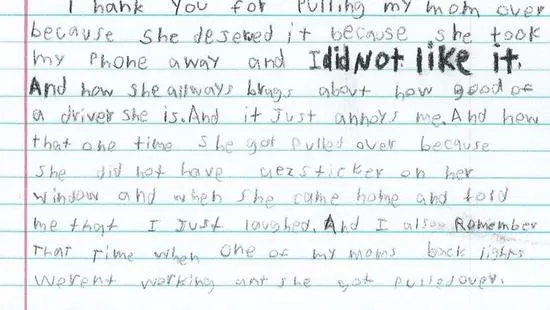 Thank You for Pulling my mom over
because she deserved it because she took
my Phone away and I did Not like it.
And how she allways brags about how good of
a driver she is. And it Just annoys me. And how
that one time she got Pulled over because
she did not have sticker on her
window and when she came home and told
me that I Just laughed. And I also Remember
That Time when one of my moms back lights
werent working and she got Pulled over.